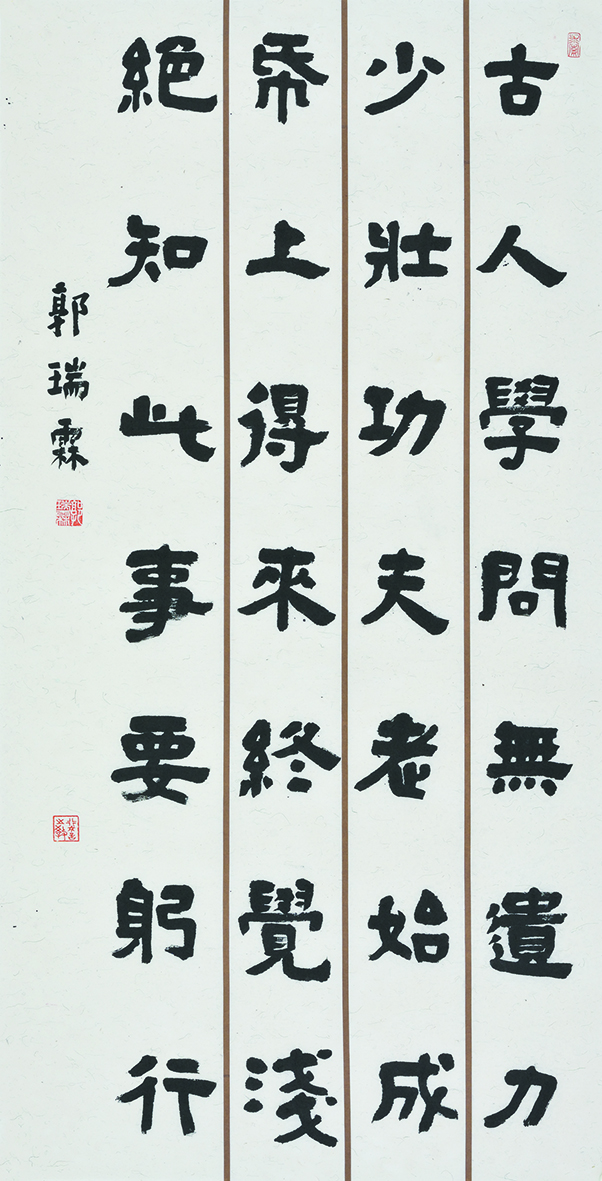 古人學問無遺力
少壯功夫老始成
帋上得來終覺淺
絶知此事要躬行
郭瑞霖